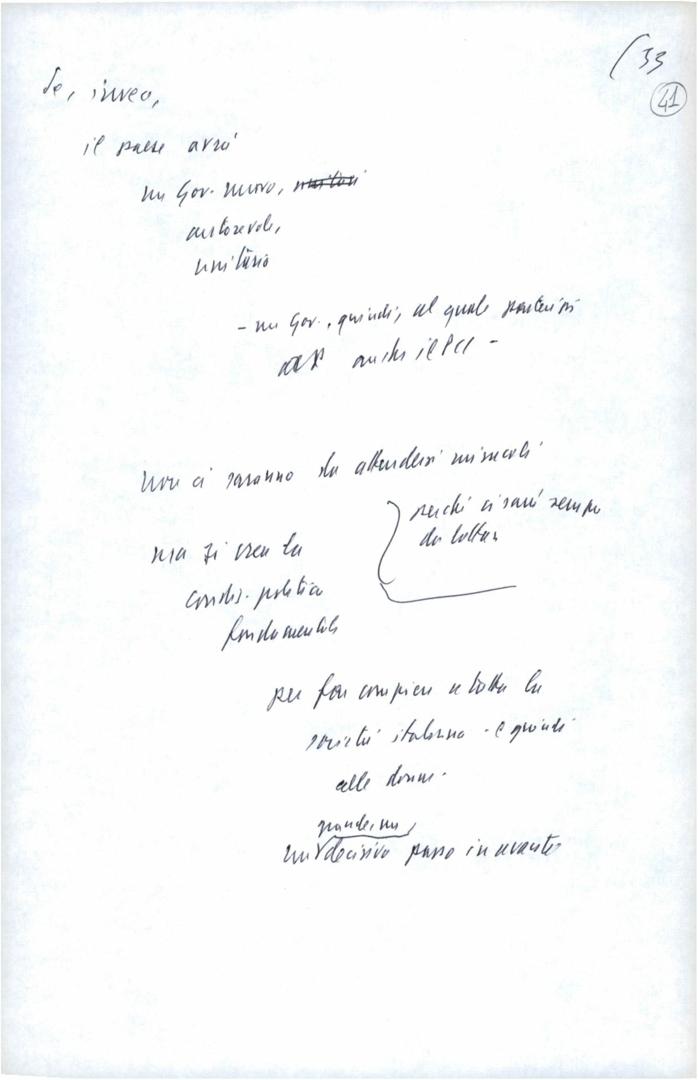 33
41
Se, invece,
il paese avrà
un Gov. nuovo, unitari
autorevole,
unitario
- un Gov., quindi, al quale partecipi
anche il PCI -
non ci saranno da attendersi miracoli
perché ci sarà sempre
da lottare
ma si crea la
condiz. politica
fondamentale
per far compiere a tutta la
società italiana - e quindi
alle donne -
grande, un
un decisivo passo in avanti